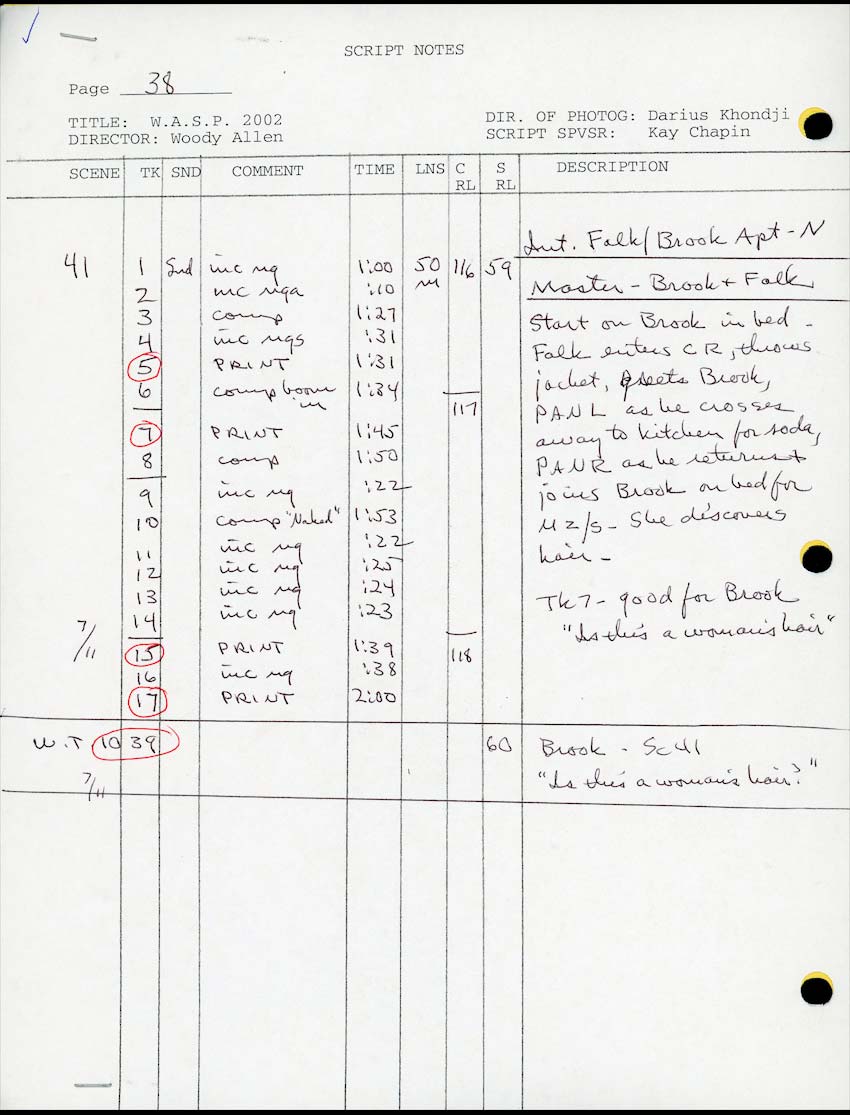 SCRIPT NOTES
Page 38
TITLE: W.A.S.P. 2002
DIRECTOR: Woody Allen
DIR. OF PHOTOG: Darius Khondji
SCRIPT SPVSR: Kay Chapin
SCENE TK SND COMMENT TIME LNS C RL S RL DESCRIPTION
Int. Falk/Brook Apt - N
41 1 Snd inc ng 1:00 50 116 59
Master - Brook + Falk
2 inc nga :10 m
3 comp 1:27
Start on Brook in bed -
4 inc ngs :31
Falk enters CR, throws
5 PRINT 1:31
jacket, greets Brook,
6 comp boom in 1:34
117
PAN L as he crosses
7 PRINT 1:45
away to kitchen for soda,
8 comp 1:50
PANR as he returns +
9 inc ng :22
joins Brook on bed for
10 comp "Naked" 1:53
M 2/s - She discovers
11 inc ng :22
hair -
12 inc ng :25
13 inc ng :24
Tk 7 - good for Brook
14 inc ng :23
"Is this a woman's hair"
7/11
15 PRINT 1:39 118
16 inc ng :38
17 PRINT 2:00
W.T 1039 60 Brook - Sc 41
7/11
"Is this a woman's hair?"